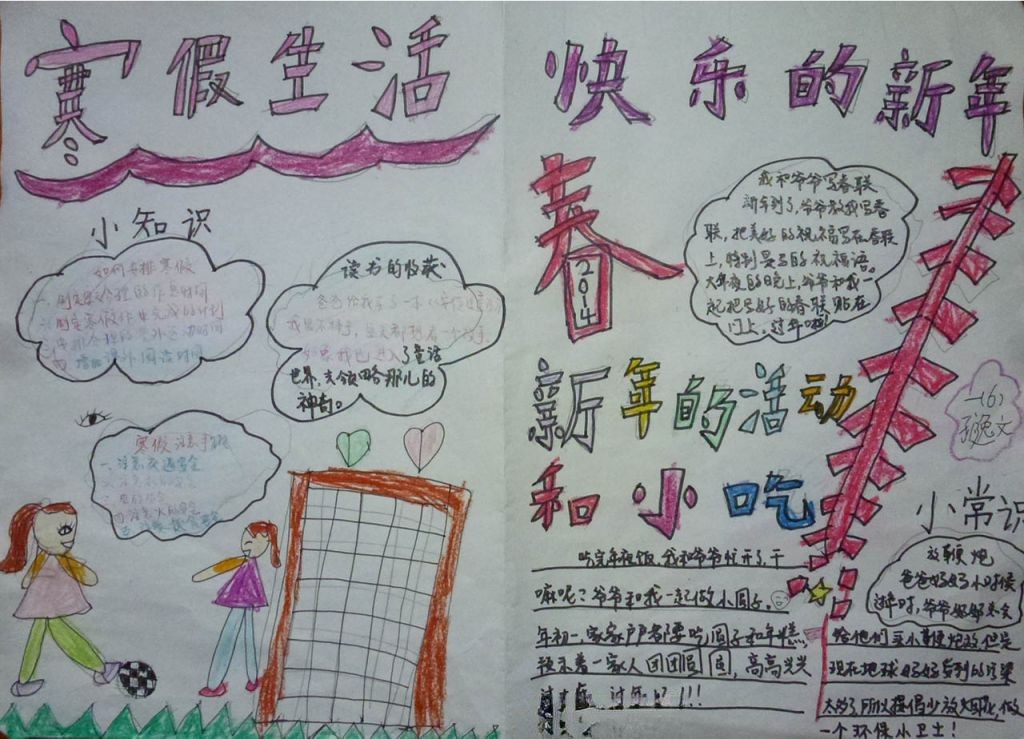 寒假生活
小知识
如何安排寒假
一、制定合理的作息时间
二、制定寒假作业完成的计划
三、安排合理的室外运动时间
四、增加课外阅读时间
读书的收获
爸爸给我买了一本
我爱不释手，每天都要看一个故事，
了童话
世界，去领略那儿的
神奇。
寒假注意事项
一、注意交通安全
快乐的新年
春
2014
我和爷爷写春联
新年到了，爷爷教我写春
联，把美好的祝福写在春联
上，特制
的祝福语。
大年夜的晚上，爷爷和我一
起把写好的春联贴在
门上，过年啦！
新年的活动
和小吃
一(6)
文
吃完年夜饭，我和爷爷忙开了，干
嘛呢？爷爷和我一起做小圆子。
年初一，家家户户都要吃圆子和年糕，
预示着一家人团团圆圆，高高兴兴
过年
过年
!!!
小常识
放鞭炮
爸爸妈妈小时候
过年时，爷爷奶奶都会
给他们买小鞭炮放，但是
现在地球妈妈受到的污染
太多了所以提倡少放烟花，做
一个环保小卫士！